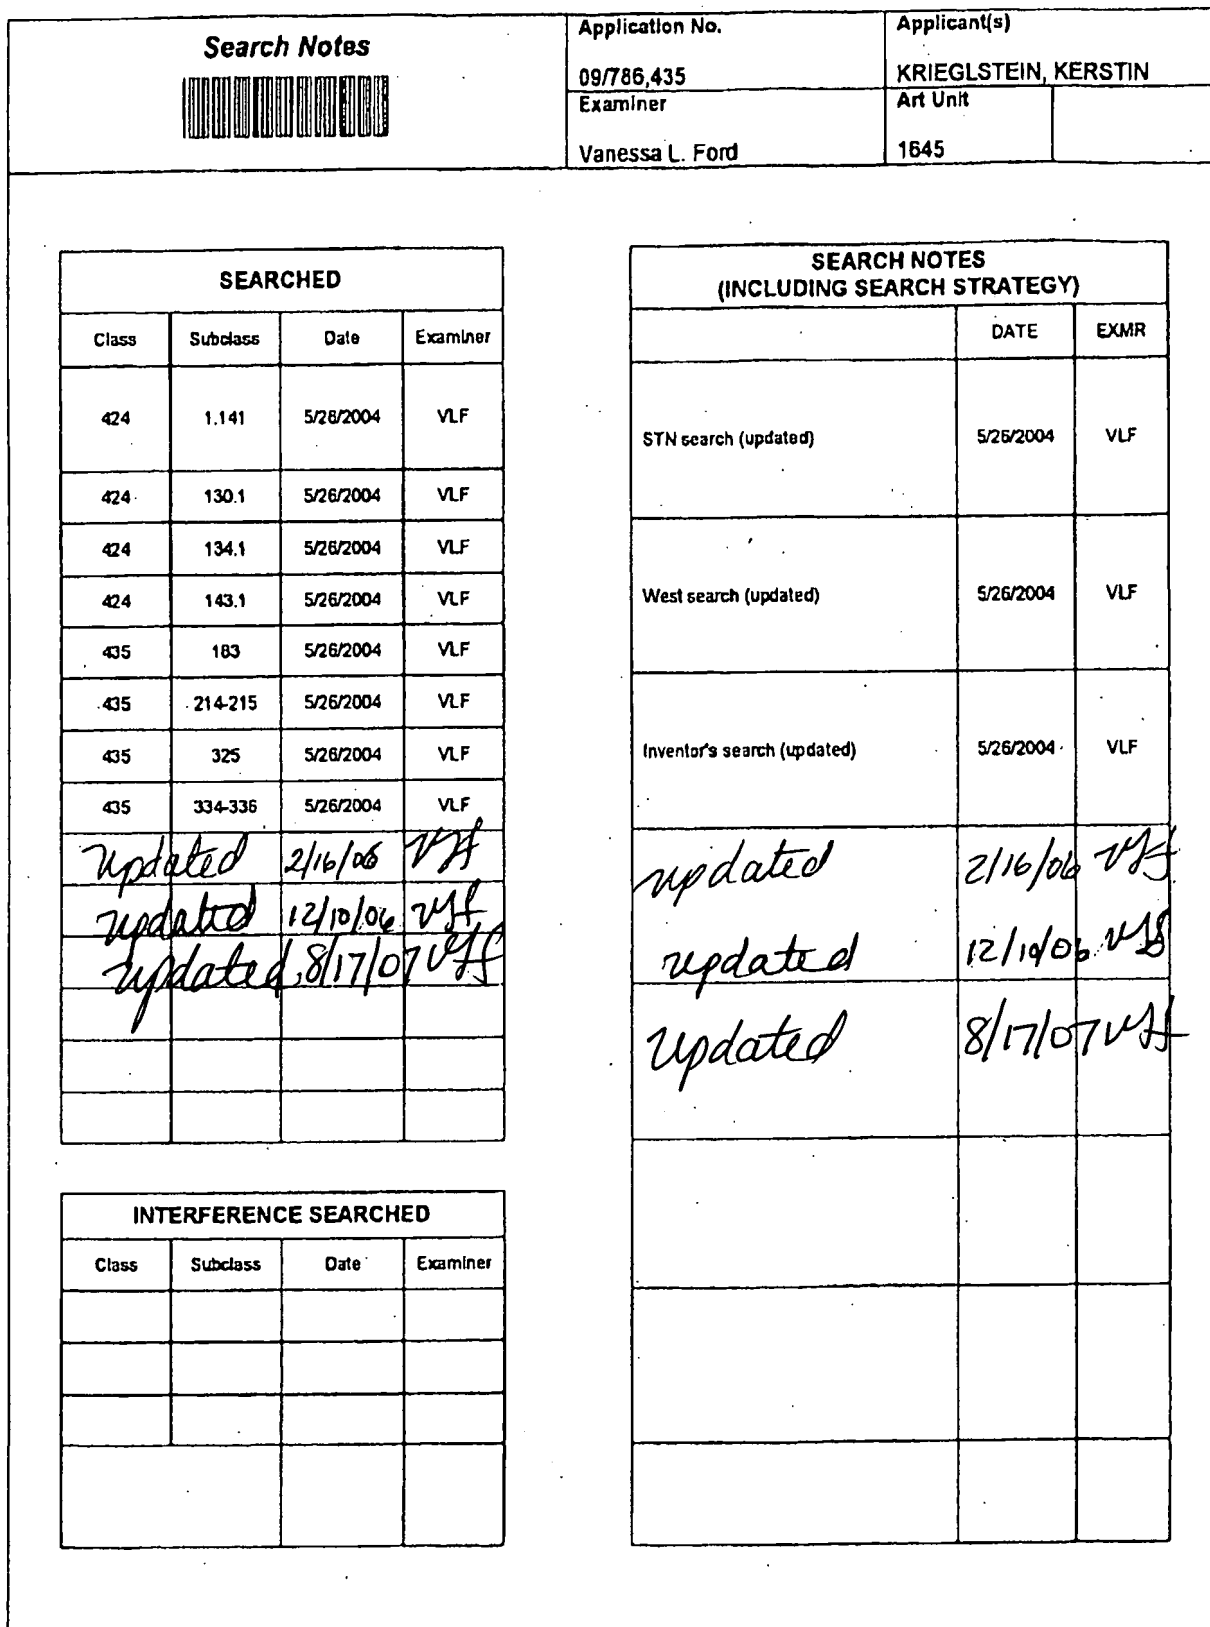 Search Notes
Application No.
09/786,435
Applicant(s)
KRIEGLSTEIN, KERSTIN
Examiner
Vanessa L. Ford
Art Unit
1645
SEARCHED
Class Subclass Date Examiner
424 1.141 5/26/2004 VLF
424 130.1 5/26/2004 VLF
424 134.1 5/26/2004 VLF
424 143.1 5/26/2004 VLF
435 183 5/26/2004 VLF
435 214-215 5/26/2004 VLF
435 325 5/26/2004 VLF
435 334-336 5/26/2004 VLF
updated 2/16/06 VLF
updated 12/10/06 VLF
updated 8/17/07 VLF
INTERFERENCE SEARCHED
Class Subclass Date Examiner
SEARCH NOTES
(INCLUDING SEARCH STRATEGY)
DATE EXMR
STN search (updated) 5/26/2004 VLF
West search (updated) 5/26/2004 VLF
Inventor's search (updated) 5/26/2004 VLF
updated 2/16/06 VLF
updated 12/10/06 VLF
updated 8/17/07 VLF